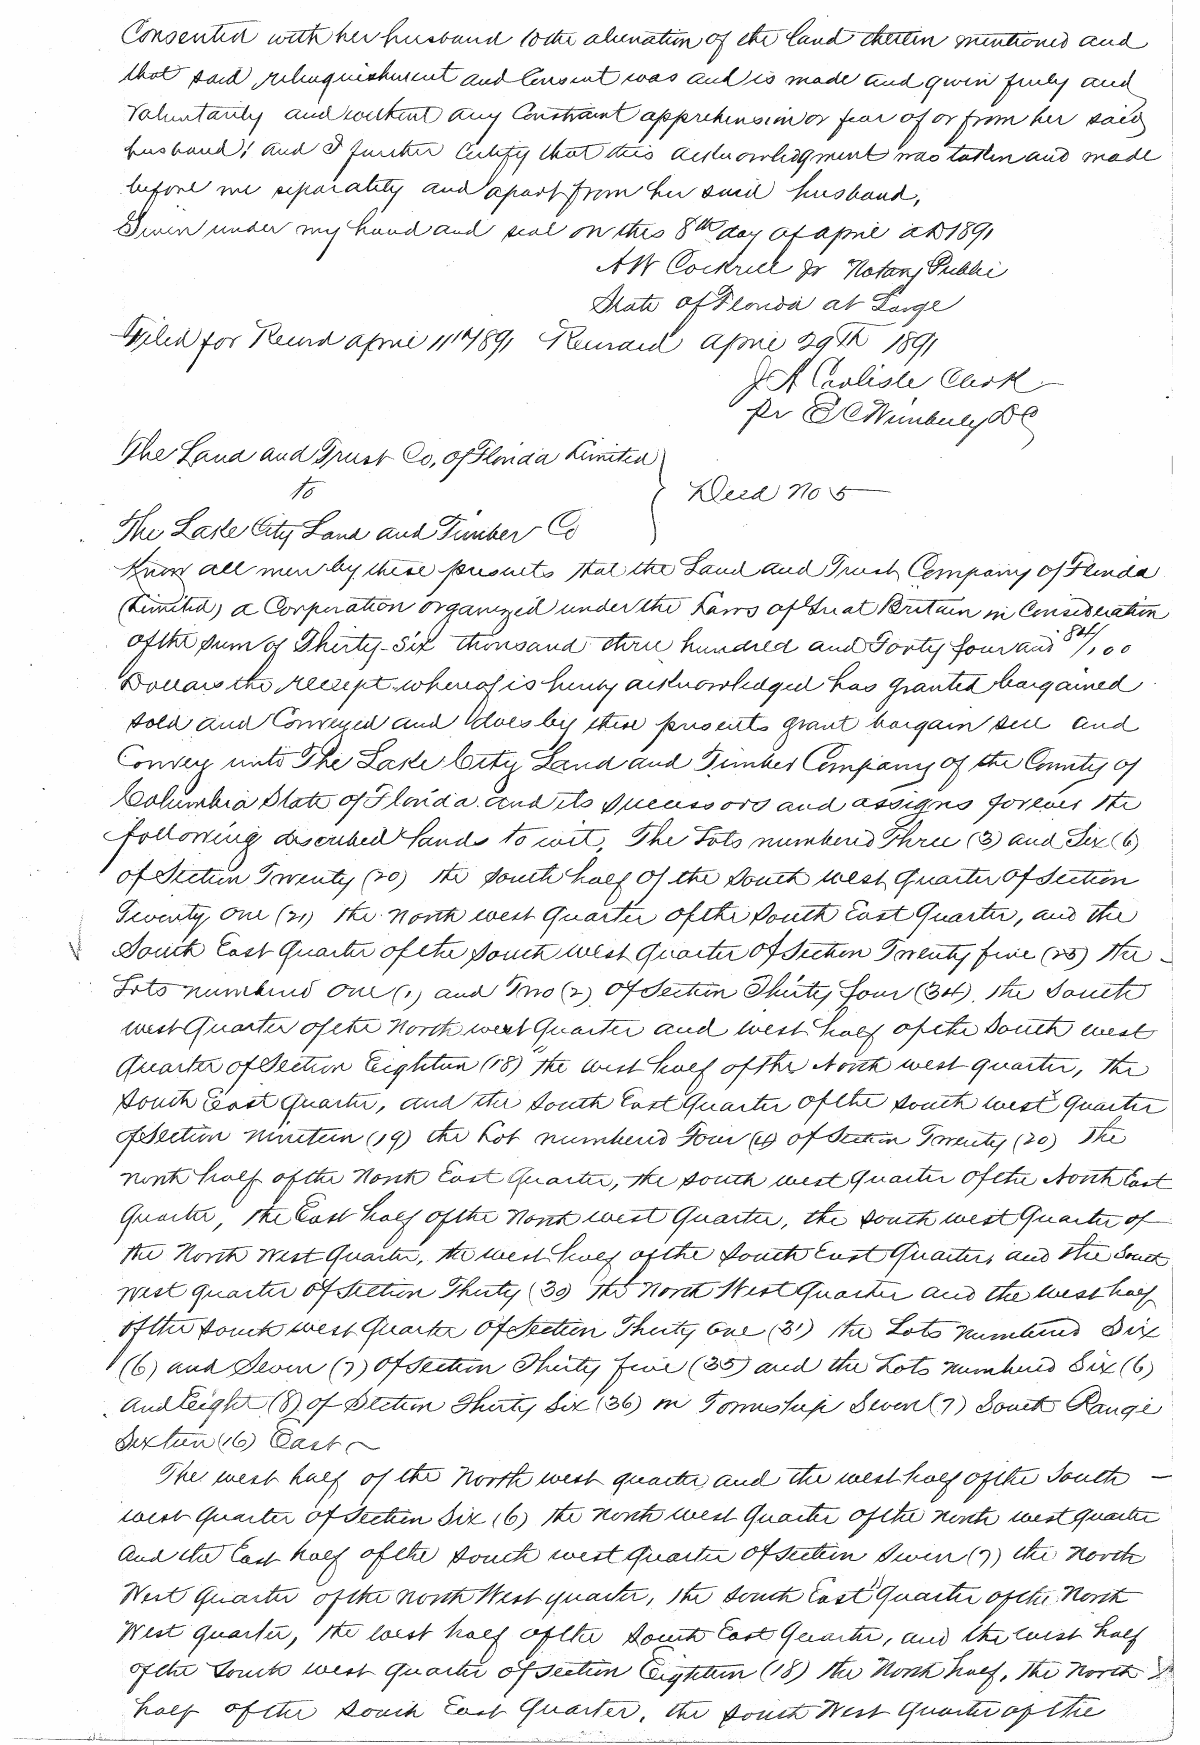 Consented with her husband to the alienation of the land therein mentioned and
that said relinquishment and Consent was and is made and given freely and
Voluntarily and without any Constraint apprehension or fear of or from her said
husband; and I further Certify that this acknowledgment was taken and made
before me separately and apart from her said husband,
Given under my hand and seal on this 8th day of april AD 1891
A W Cockrell Jr Notary Public
State of Florida at Large
Filed for Record april 11th 1891 Record april 29th 1891
J A Carlisle Clerk
Pr E C Wimberly DC
The Land and Trust Co, of Florida Limited
to
Deed No 5
The Lake City Land and Timber Co
Know all men by these presents that the Land and Trust Company of Florida
(Limited) a Corporation organized under the Laws of Great Britain in Consideration
of the sum of Thirty-Six thousand three hundred and Forty four and 84/100
Dollars the receipt whereof is hereby acknowledged has granted bargained
sold and Conveyed and does by these presents grant bargain sell and
Convey unto The Lake City Land and Timber Company of the County of
Columbia State of Florida and its successors and assigns forever the
following described lands to wit, The Lots numbered Three (3) and Six (6)
of Section Twenty (20) the south half of the South west Quarter of Section
Twenty one (21) the north west Quarter of the South East Quarter, and the
South East Quarter of the South west Quarter of Section Twenty five (25) the
Lots numbered One (1) and Two (2) of Section Thirty four (34), the South
west Quarter of the North west Quarter and west half of the South west
Quarter of Section Eighteen (18) the west half of the North west quarter, the
South East Quarter, and the South East Quarter of the south west Quarter
of Section Nineteen (19) the Lot numbered Four (4) of Section Twenty (20) the
north half of the North East Quarter, the south west Quarter of the North East
Quarter, the East half of the North west Quarter, the south west Quarter of
the North West Quarter, the west half of the South East Quarter, and the South
west quarter of Section Thirty (30) the North West Quarter and the west half
of the South west Quarter of Section Thirty One (31) the Lots numbered Six
(6) and Seven (7) of Section Thirty five (35) and the Lots numbered Six (6)
and Eight (8) of Section Thirty Six (36) in Township Seven (7) South Range
Sixteen (16) East
The west half of the North west quarter and the west half of the South
west Quarter of Section Six (6) the north west Quarter of the north west quarter
and the East half of the south west Quarter of Section Seven (7) the North
West Quarter of the North West quarter, the South East Quarter of the North
West quarter, the west half of the South East Quarter, and the west half
of the South west Quarter of Section Eighteen (18) the North half, the North
half of the South East Quarter, the South West Quarter of the